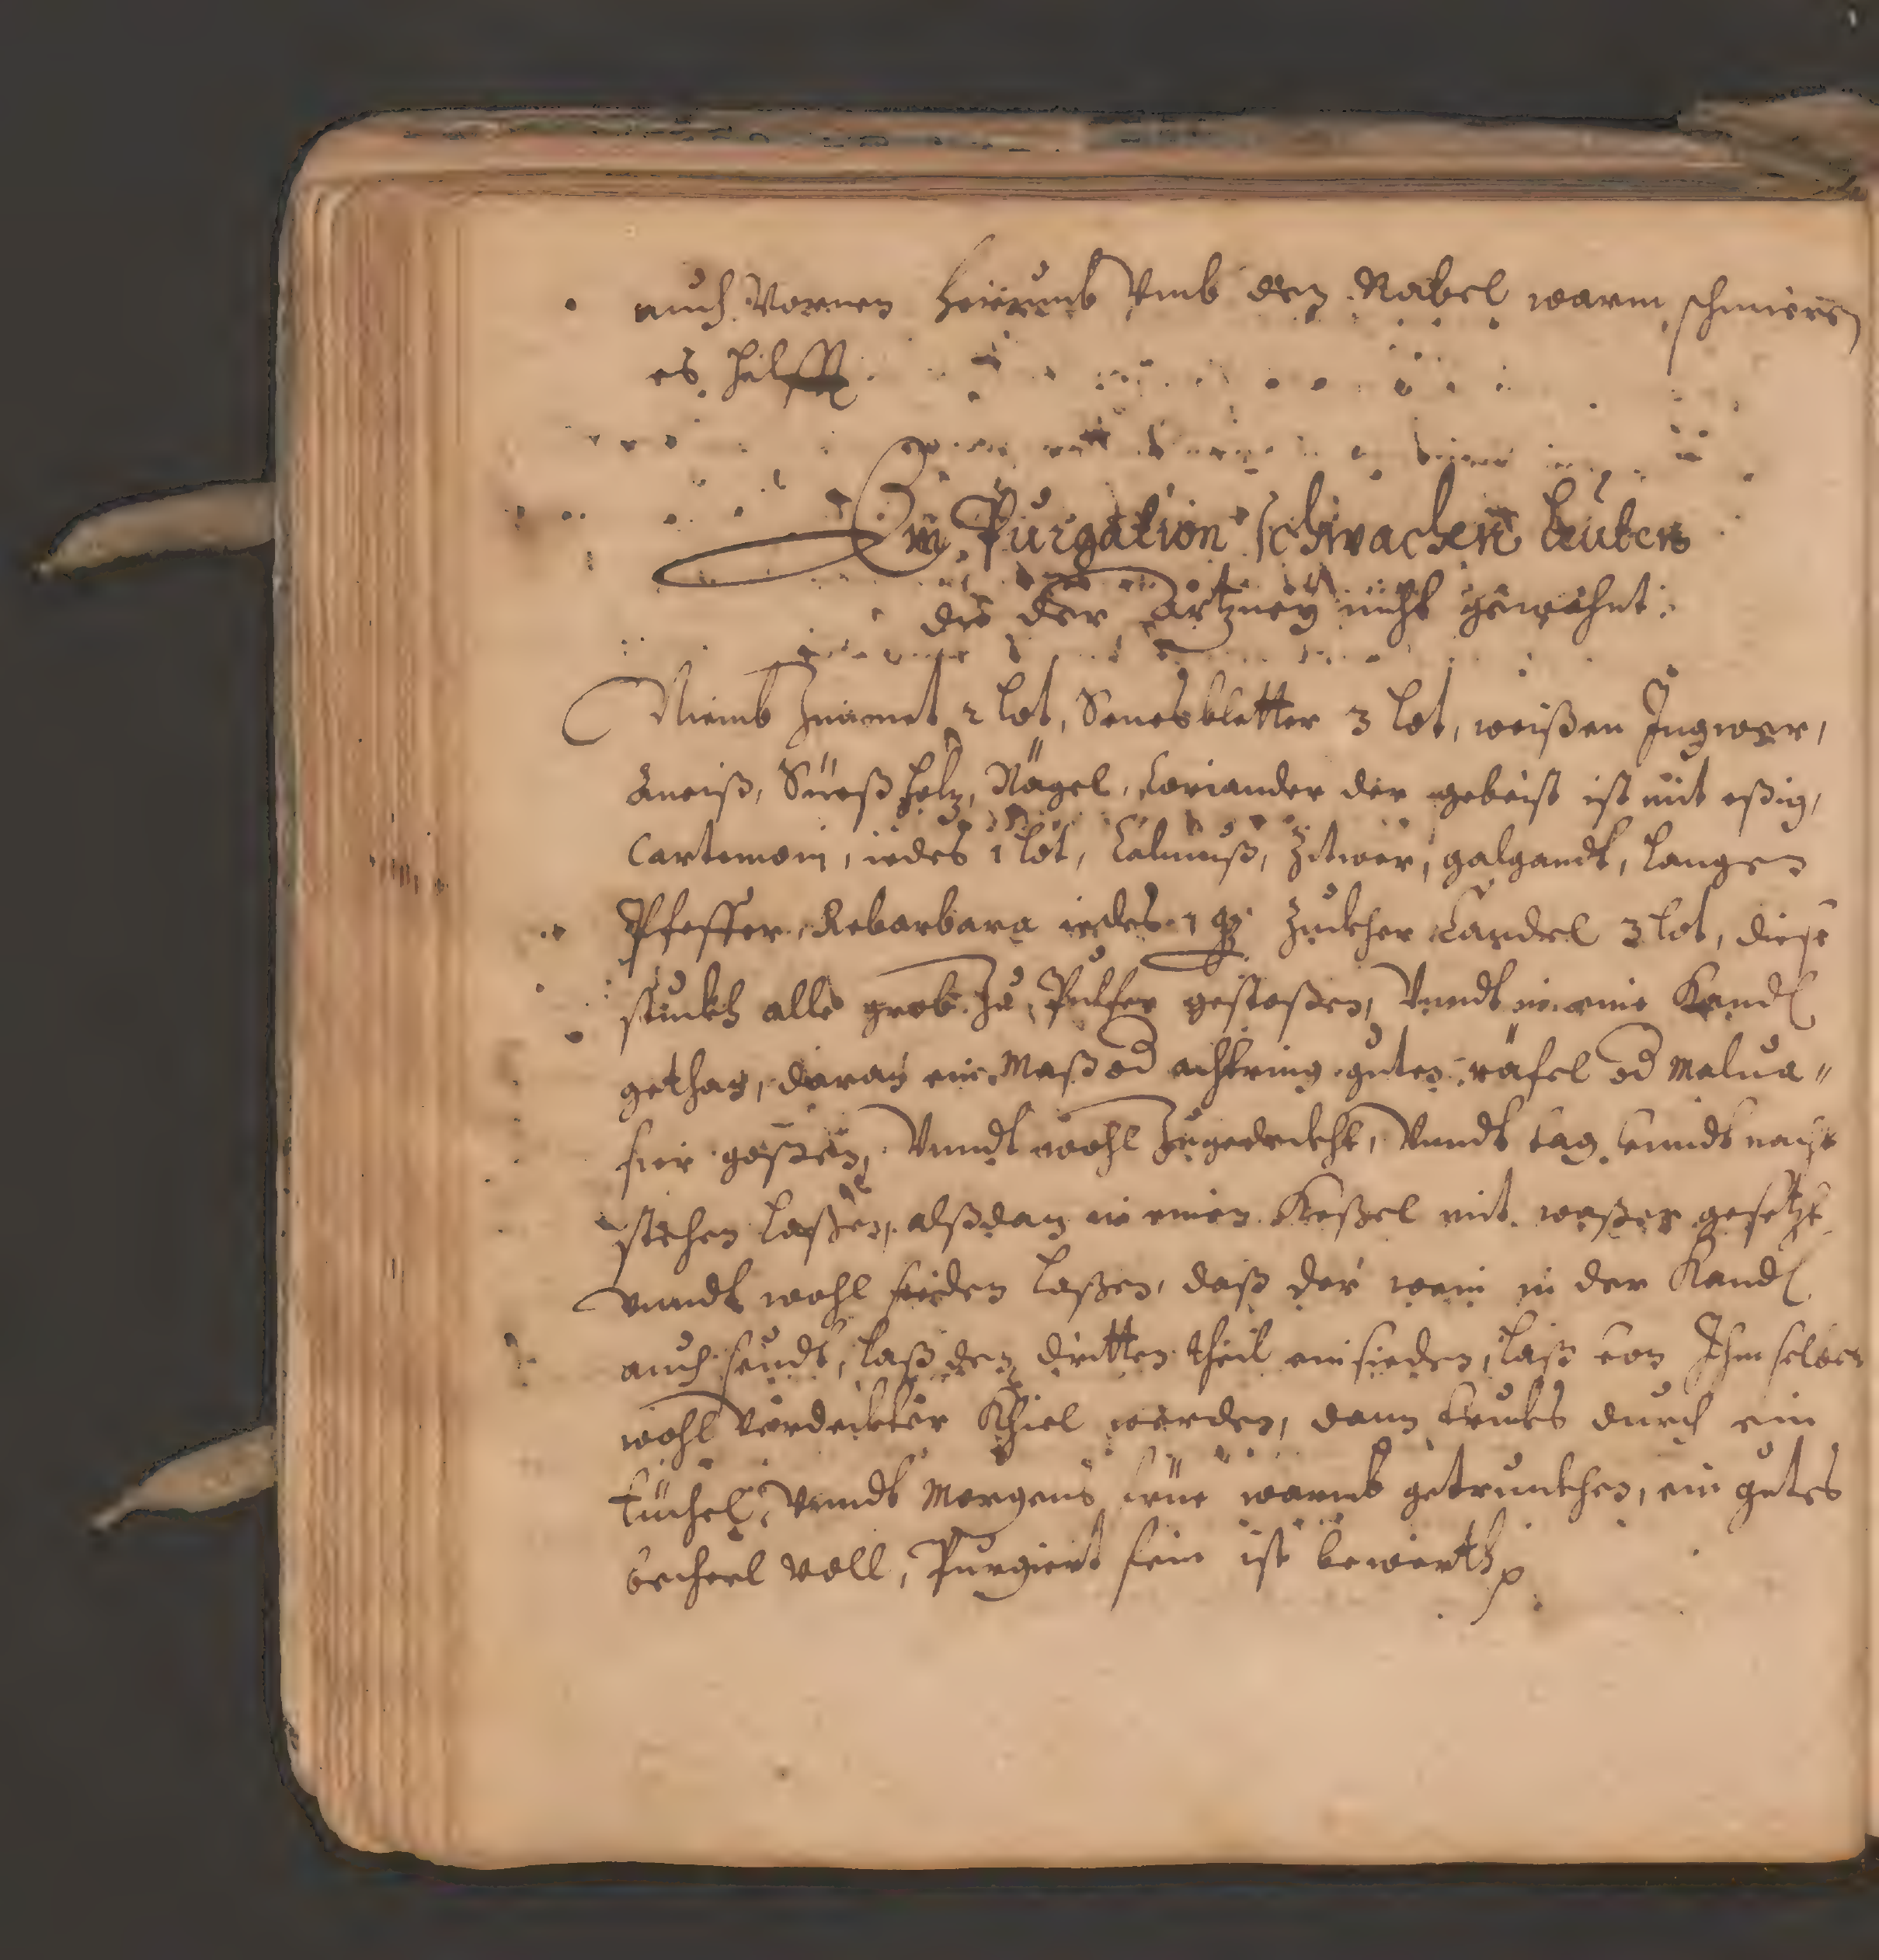 auch Vornen herumb Vmb den Nabel warm schmieren
es hilfft.
Ein Purgation schwachen Leuten
die der artzney nicht gewohnt:
Niemb Zimmet 2 lot, Senesbletter 3 lot, weißen Ingwer,
Aneiß, Süeßholz, Nägel, Coriander der gebeist ist mit eßig,
Cartemom, iedes 1 lot, Calmuß, Zitwer, galgandt, langen
Pfeffer, Rebarbara iedes 1 q Zuckher Candel 3 lot, diese
stuckh alle grob Zu Pulfer gestoßen, Vnndt in eine Kandl
gethan, daran ein Maß od achtring guten räfel od Malua=
sier goßen, Vnndt wohl Zugedeckht, Vnndt tag vnndt nacht
stehen laßen, alßdan in einen Keßel mit waßer gesetzt
Vnndt wohl sieden laßen, daß der wein in der Kandl
auch seudt, laß den dritten theil einsieden, laß von Ihm selber
wohl Verdeckter Khiel werden, dann truckhs durch ein
tüchel, Vnndt Morgens früe warmb getrunckhen, ein gutes
becherl Voll, Purgiert fein ist bewerth